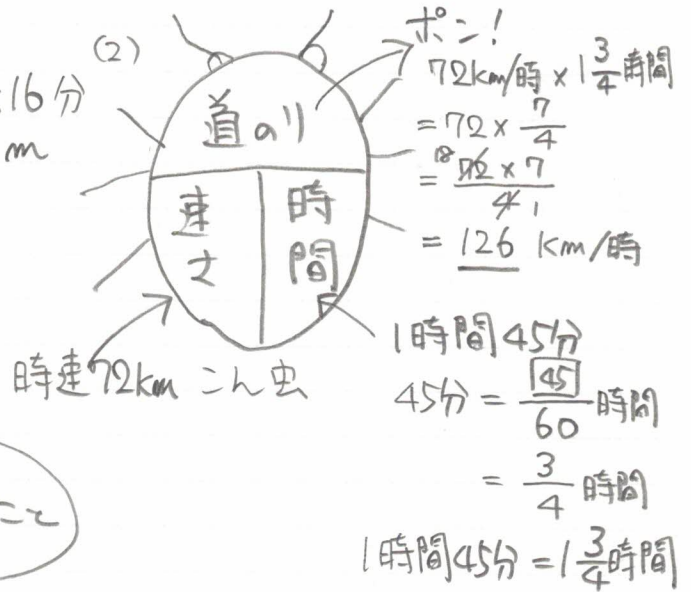 (2)
:16分
m
道のり
速さ
時間
時速72km こん虫
こと
ポン!
72km/時×1 3/4時間
=72×7/4
=18 72×7/4 1
=126 km/時
1時間45分
45分=45/60時間
=3/4時間
1時間45分=1 3/4時間